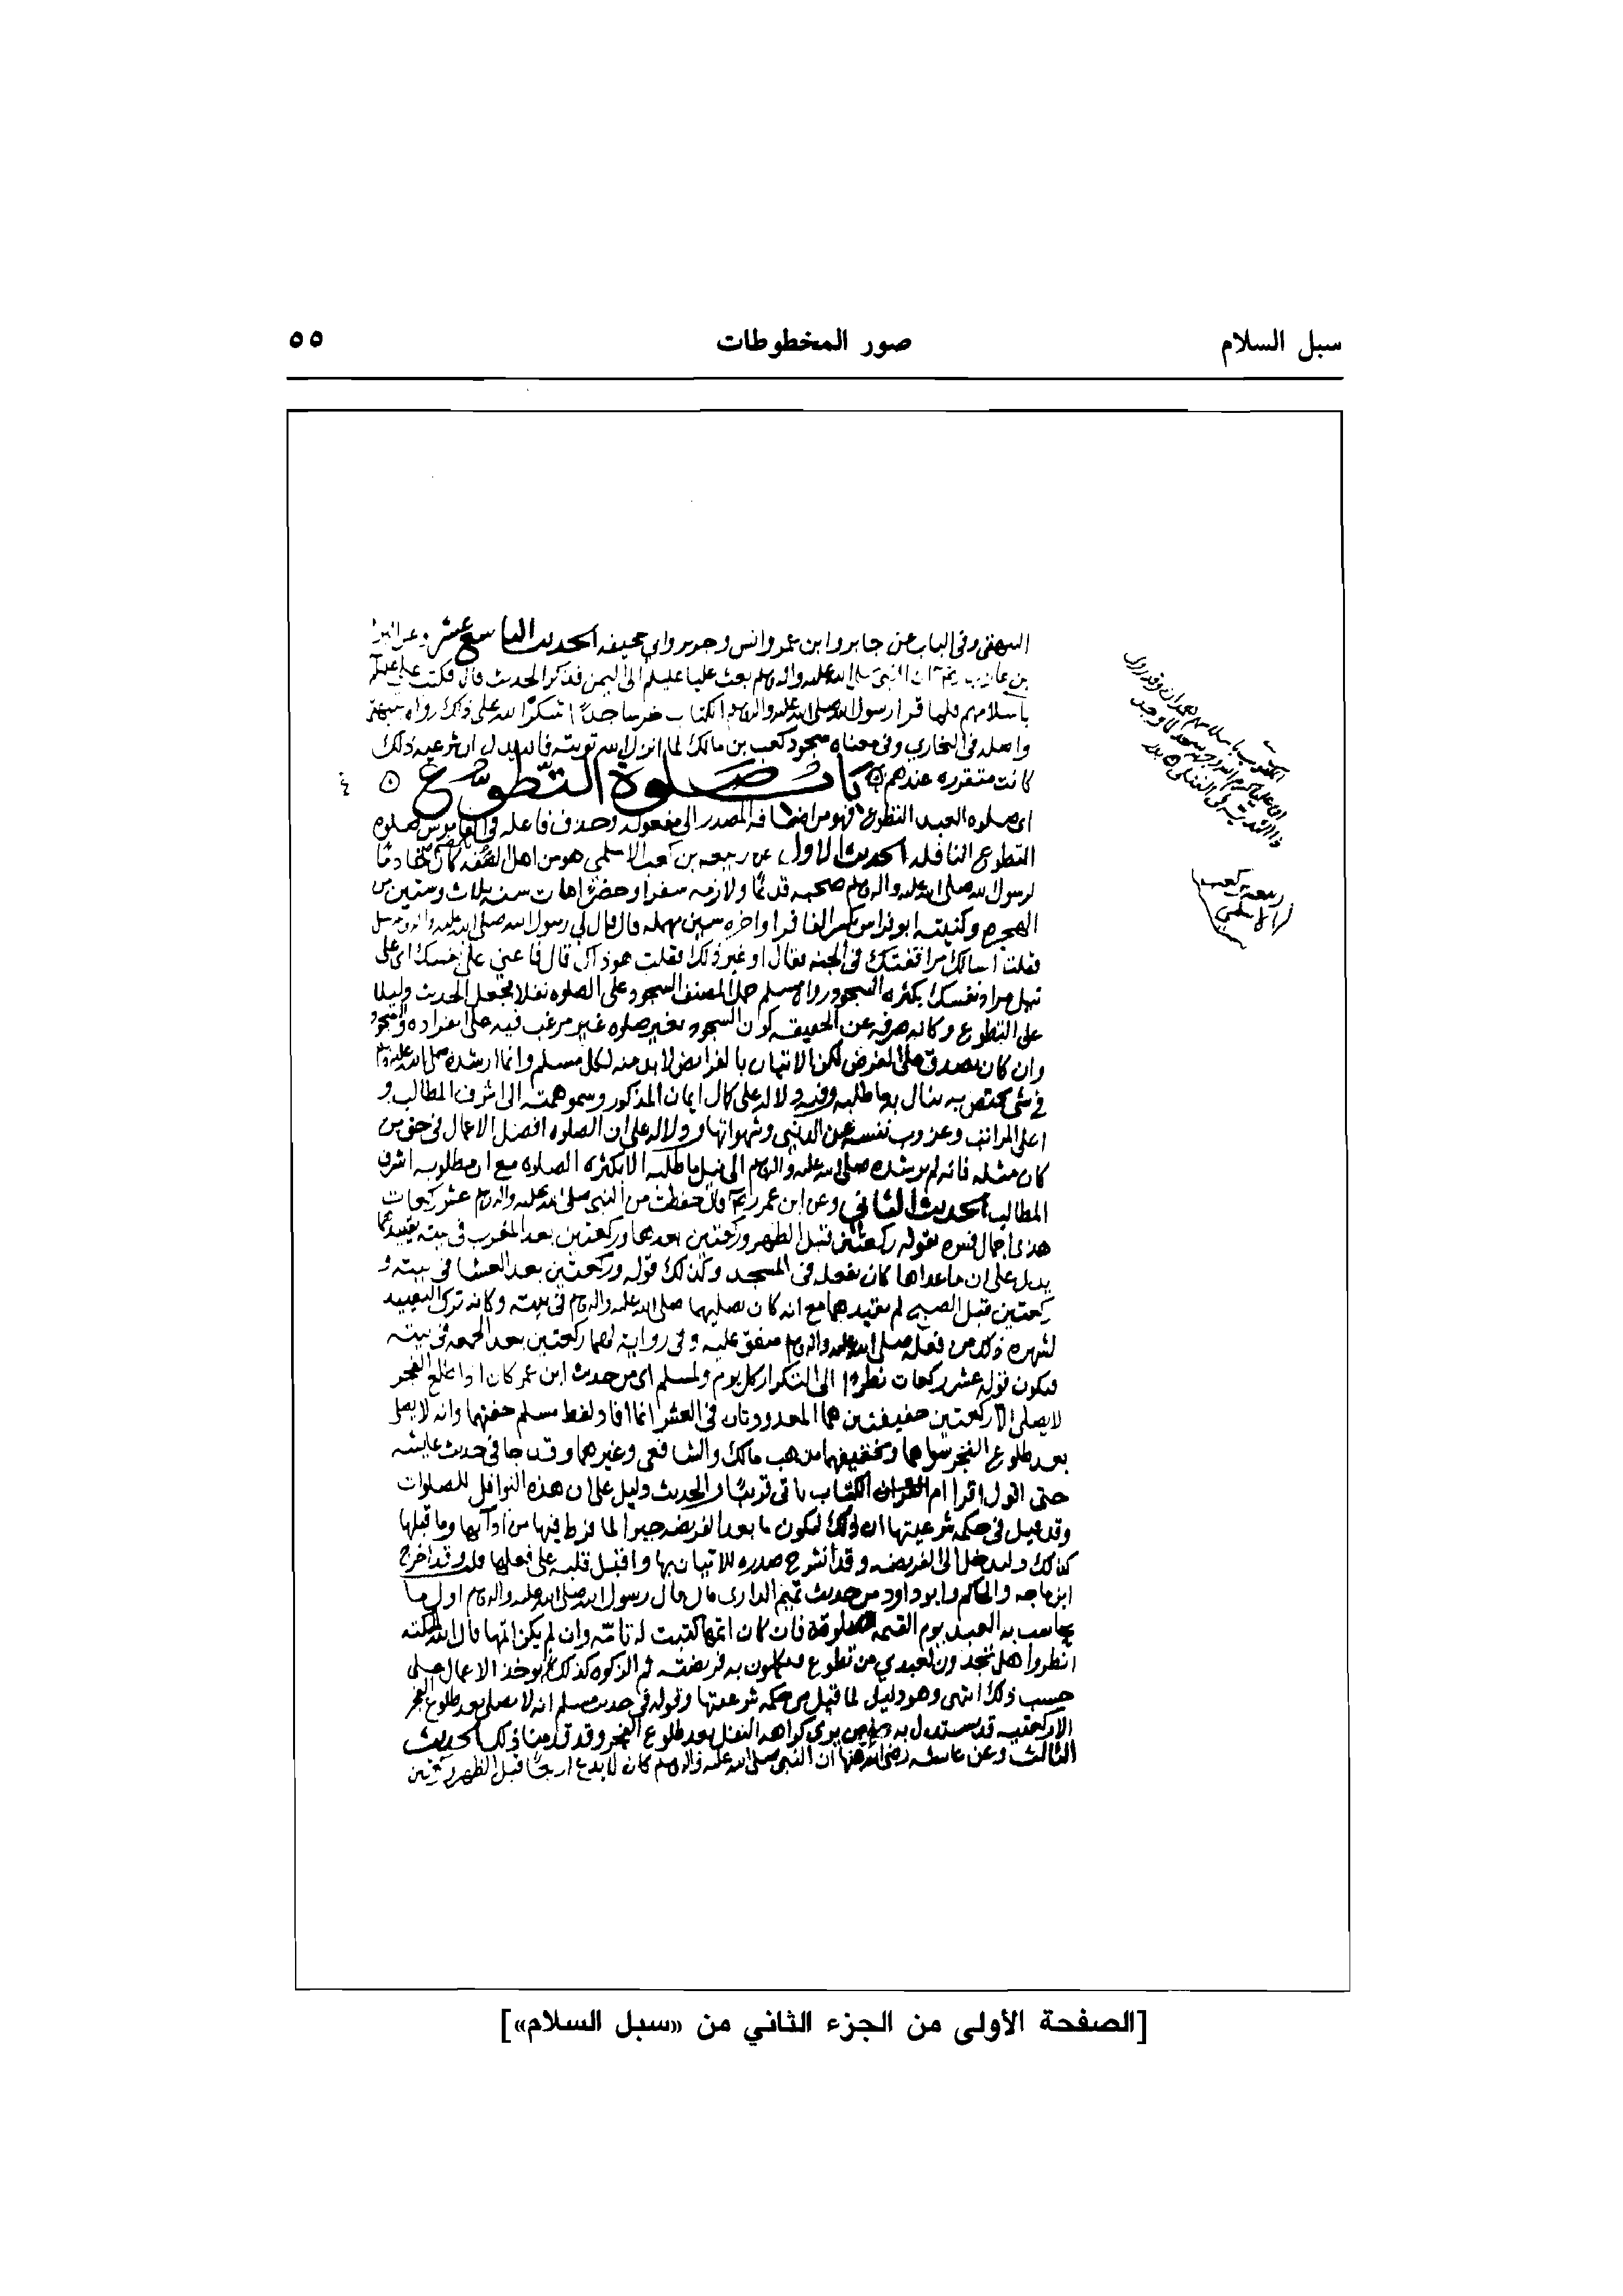 سبل السلام
صور المخطوطات
٥٥
البيهقي وفي الباب عن جابر وابن عمر وانس وجرير وابي جحيفه الحديث التاسع عشر وعن البرا
بن عازب رضي ان النبي صلى الله عليه واله وسلم بعث عليا عليلم الى اليمن فذكر الحديث قال فكتب علي عليلم
باسلامهم فلما قرا رسول الله صلى الله عليه واله وسلم الكتاب خر ساجدًا شكرًا لله على ذلك رواه البيهقي
واصله في البخاري وفي معناه سجود كعب بن مالك لما انزل الله توبته فانه يدل ان شرعيه ذلك
كانت متقرره عندهم باب صلوة التطوع
اي صلوه العبد التطوع فهو من اضافه المصدر الى مفعوله وحذف فاعله في القاموس صلوه
التطوع النافله الحديث الاول عن ربيعه بن كعب الاسلمي هو من اهل الصفه كان خادمًا
لرسول الله صلى الله عليه واله وسلم صحبه قديمًا ولازمه سفرا وحضرا مات سنه ثلاث وستين من
الهجره وكنيته ابو فراس بكسر الفا فرا واخره سين مهمله قال قال لي رسول الله صلى الله عليه واله وسلم سل
فقلت اسالك مرافقتك في الجنه فقال او غير ذلك فقلت هو ذاك قال فاعني على نفسك اي على
نيل مراد نفسك بكثره السجود رواه مسلم حمل المصنف السجود على الصلوه نفلا فجعل الحديث دليلا
على التطوع وكانه صرفه عن الحقيقه كون السجود بغير صلوه غير مرغب فيه على انفراده والسجود
وان كان يصدق على الفرض لكن الاتيان بالفرايض لا بد منه لكل مسلم وانما ارشده صلى الله عليه وسلم
في شي يختص به ينال به ما طلبه وفيه دلاله على كمال ايمان المذكور وسمو همته الى اشرف المطالب و
اعلى المراتب وعزوب نفسه عن الدنيى وشهواتها ودلاله على ان الصلوه افضل الاعمال في حق من
كان مثله فانه لم يرشده صلى الله عليه واله وسلم الى نيل ما طلبه الا بكثره الصلوه مع ان مطلوبه اشرف
المطالب الحديث الثاني وعن ابن عمر رضي قال حفظت من النبي صلى الله عليه واله وسلم عشر ركعات
هذا اجمال فسره بقوله ركعتين قبل الظهر وركعتين بعدها وركعتين بعد المغرب في بيته تقييدها
يدل على ان ما عداها كان يفعله في المسجد وكذلك قوله وركعتين بعد العشا في بيته و
ركعتين قبل الصبح لم يقيدهما مع انه كان يصليهما صلى الله عليه واله وسلم في بيته وكانه ترك التقييد
لشهره ذلك من فعله صلى الله عليه واله وسلم متفق عليه وفي رواية لهما ركعتين بعد الجمعه في بيته
فيكون قوله عشر ركعات نظرا الى التكرار كل يوم ولمسلم اي من حديث ابن عمر كان اذا طلع الفجر
لا يصلي الا ركعتين خفيفتين هما المعدودتان في العشر انما افاد لفظ مسلم خفتهما وانه لا يصلي
بعد طلوع الفجر سواهما وتخفيفهما مذهب مالك والشافعي وغيرهما وقد جا في حديث عايشه
حتى اقول اقرا ام الكتاب ياتي قريبًا والحديث دليل على ان هذه النوافل للصلوات
وقد قيل في حكمه شرعيتها ان ذلك ليكون ما بعد الفريضه جبرا لما فرط فيها من ادابها وما قبلها
كذلك وليدخل الى الفريضه وقد انشرح صدره للاتيان بها واقبل قلبه على فعلها قلت وقد اخرج
ابن ماجه والحاكم وابو داود من حديث تميم الداري قال قال رسول الله صلى الله عليه واله وسلم اول ما
يحاسب به العبد يوم القيمه صلوته فان كان اتمها كتبت له تامّه وان لم يكن اتمها قال الله لملئكته
انظروا هل تجدون لعبدي من تطوع فتكملون به فريضته ثم الزكوه كذلك ثم توخذ الاعمال على
حسب ذلك انتهى وهو دليل لما قيل من حكمه شرعيتها وقوله في حديث مسلم انه لا يصلي بعد طلوع الفجر
الا ركعتيه قد يستدل به من يرى كراهه النفل بعد طلوع الفجر وقد قدمنا ذلك الحديث
الثالث وعن عايشه رضي الله عنها ان النبي صلى الله عليه واله وسلم كان لا يدع اربعًا قبل الظهر وركعتين
ربيعة بن كعب
الاسلمي
[الصفحة الأولى من الجزء الثاني من «سبل السلام»]